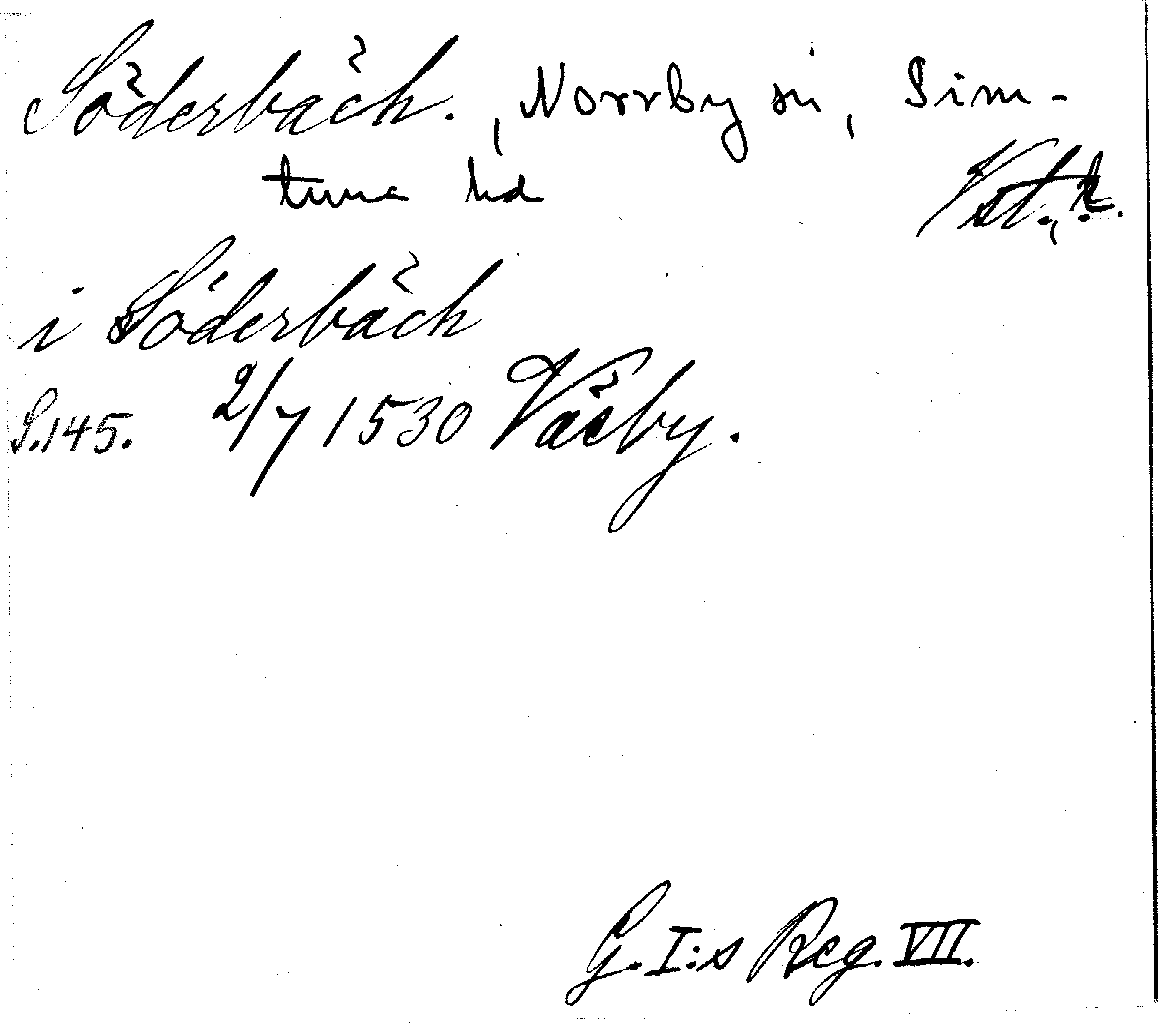 Söderbäch. , Norrby sn, Sim-
tuna hd
Vst.,
i Söderbäch
S.145. 2/7 1530 Väsby.
G.I:s Reg. VII.